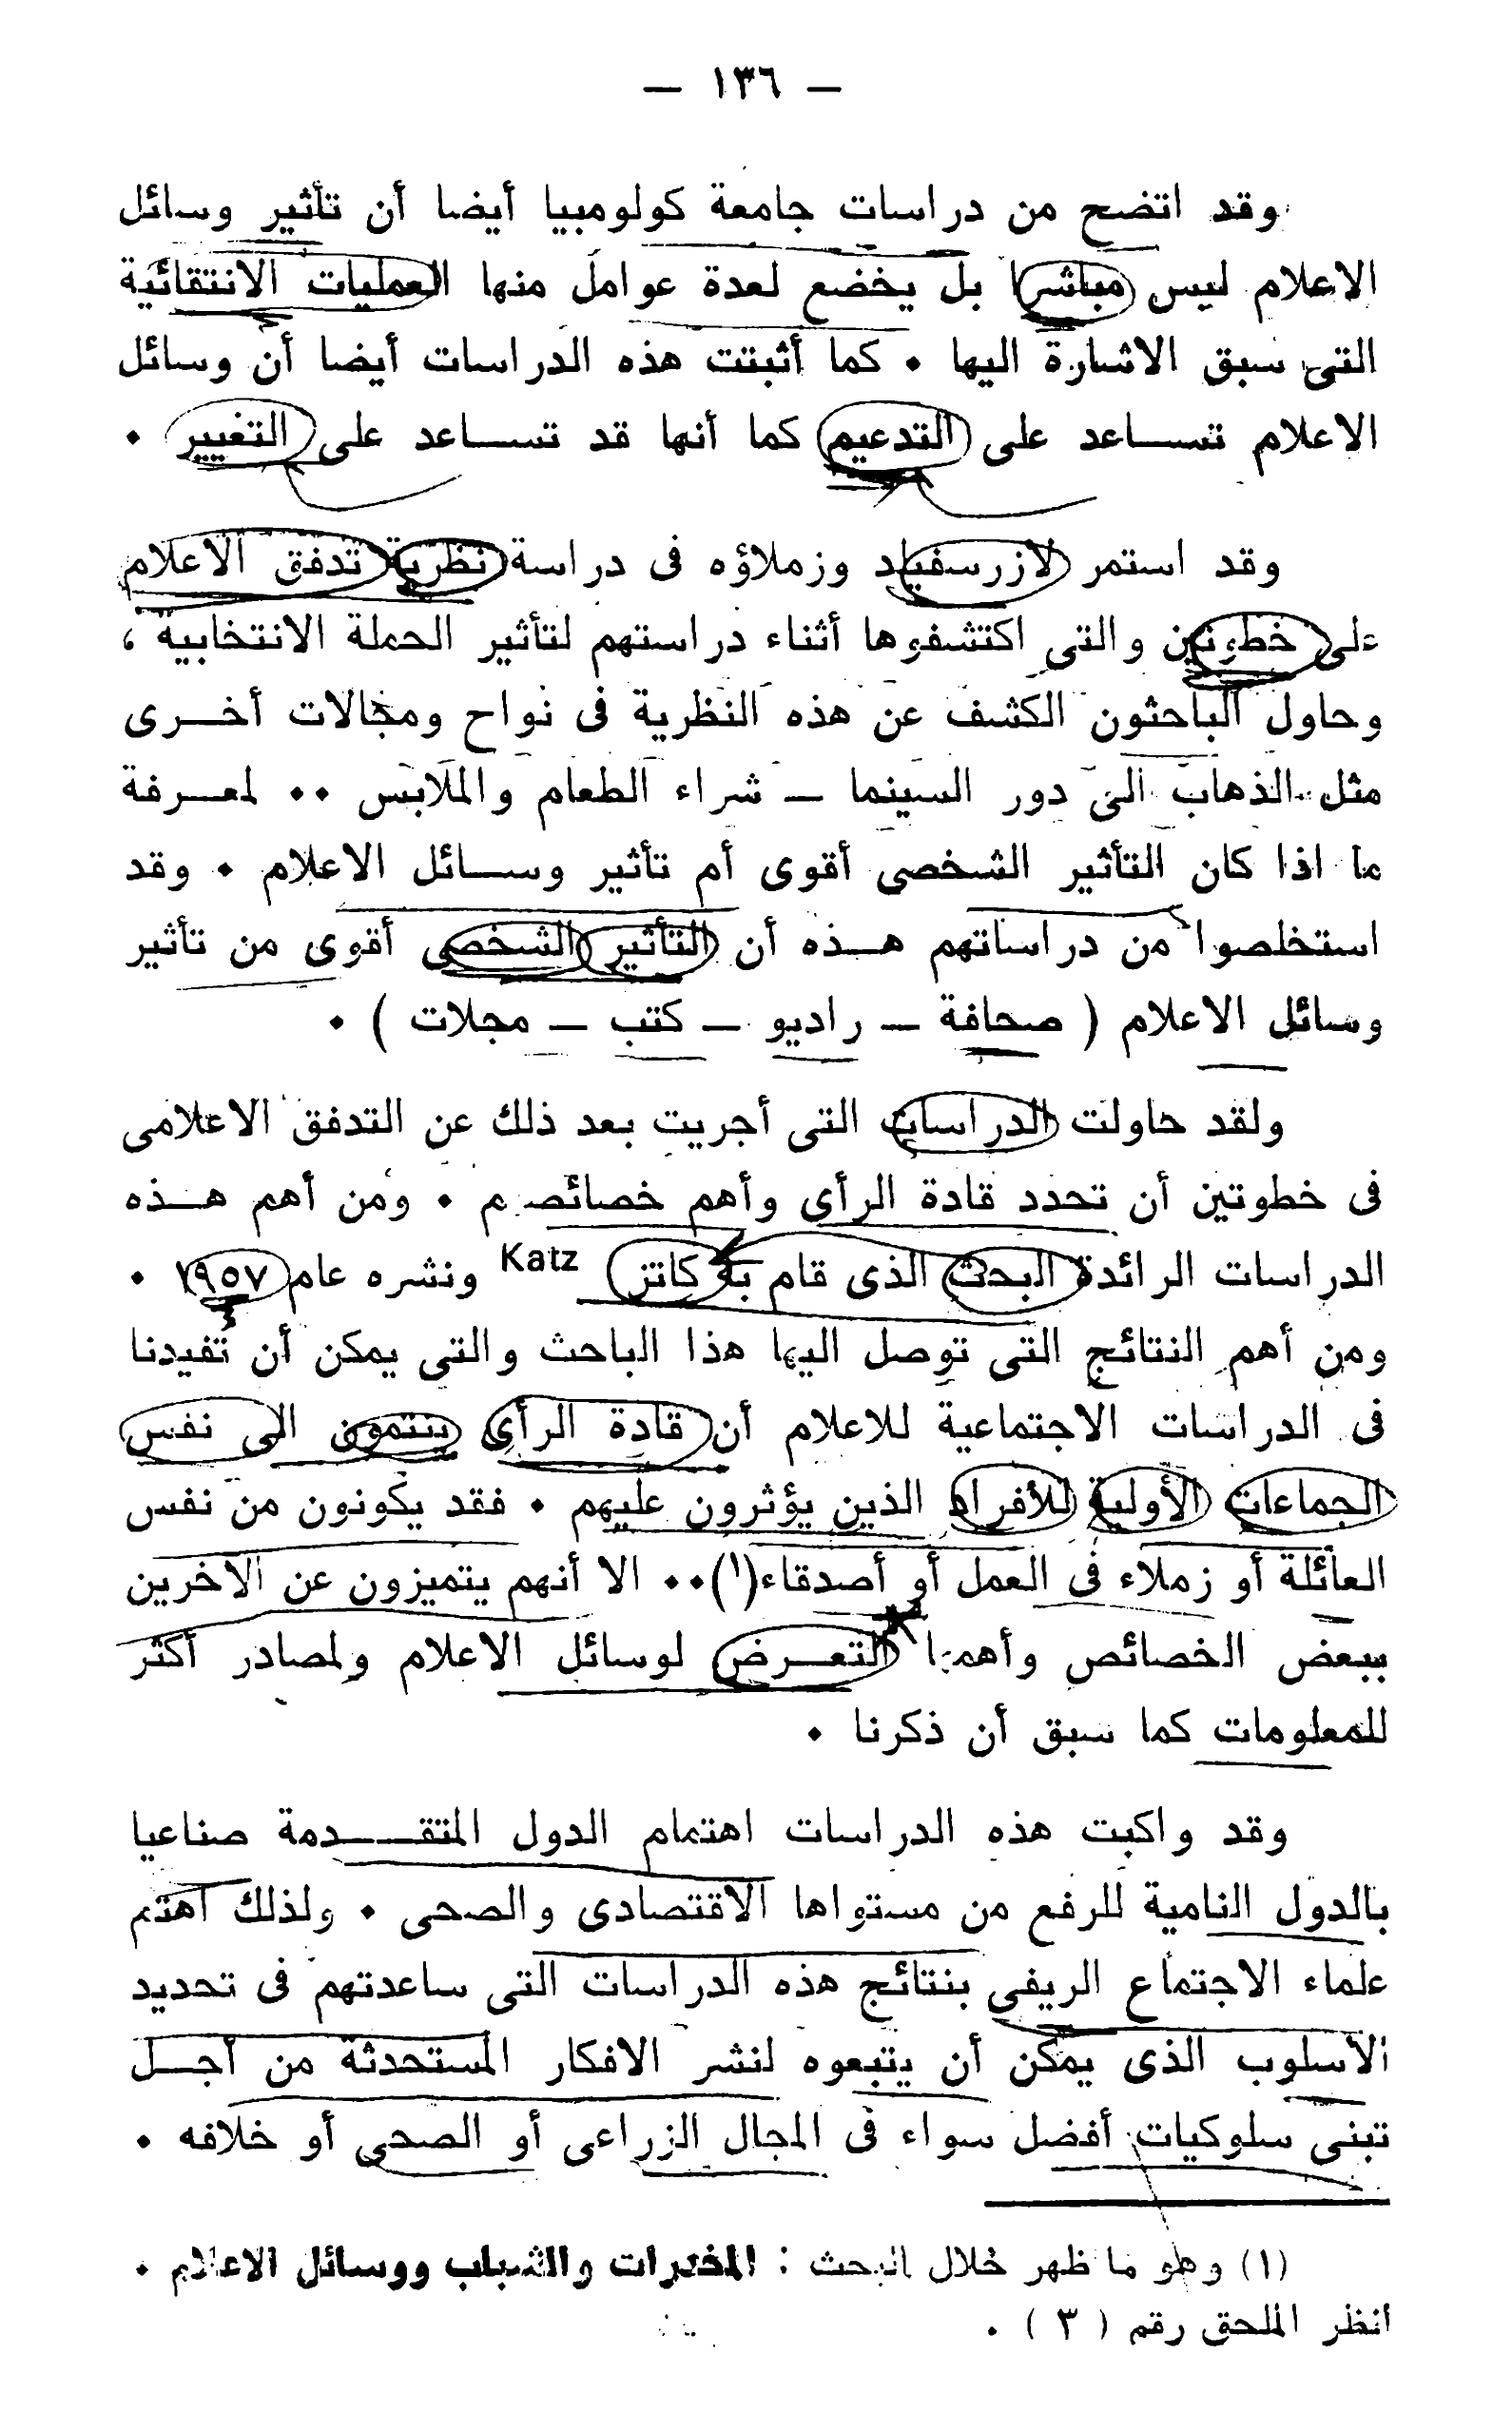 — ١٣٦ —
وقد اتضح من دراسات جامعة كولومبيا أيضا أن تأثير وسائل
الاعلام ليس مباشرا بل يخضع لعدة عوامل منها العمليات الانتقائية
التى سبق الاشارة اليها • كما أثبتت هذه الدراسات أيضا أن وسائل
الاعلام تساعد على التدعيم كما أنها قد تساعد على التغيير •
وقد استمر لازرسفيلد وزملاؤه فى دراسة نظرية تدفق الاعلام
على خطوتين والتى اكتشفوها أثناء دراستهم لتأثير الحملة الانتخابية ،
وحاول الباحثون الكشف عن هذه النظرية فى نواح ومجالات أخرى
مثل الذهاب الى دور السينما — شراء الطعام والملابس •• لمعرفة
ما اذا كان التأثير الشخصى أقوى أم تأثير وسائل الاعلام • وقد
استخلصوا من دراساتهم هذه أن التأثير الشخصى أقوى من تأثير
وسائل الاعلام ( صحافة — راديو — كتب — مجلات ) •
ولقد حاولت الدراسات التى أجريت بعد ذلك عن التدفق الاعلامى
فى خطوتين أن تحدد قادة الرأى وأهم خصائصهم • ومن أهم هذه
الدراسات الرائدة البحث الذى قام به كاتز Katz ونشره عام ١٩٥٧ •
ومن أهم النتائج التى توصل اليها هذا الباحث والتى يمكن أن تفيدنا
فى الدراسات الاجتماعية للاعلام أن قادة الرأى ينتمون الى نفس
الجماعات الأولية للأفراد الذين يؤثرون عليهم • فقد يكونون من نفس
العائلة أو زملاء فى العمل أو أصدقاء(١)•• الا أنهم يتميزون عن الآخرين
ببعض الخصائص وأهمها التعرض لوسائل الاعلام ولمصادر أكثر
للمعلومات كما سبق أن ذكرنا •
وقد واكبت هذه الدراسات اهتمام الدول المتقدمة صناعيا
بالدول النامية للرفع من مستواها الاقتصادى والصحى • ولذلك اهتم
علماء الاجتماع الريفى بنتائج هذه الدراسات التى ساعدتهم فى تحديد
الأسلوب الذى يمكن أن يتبعوه لنشر الافكار المستحدثة من أجل
تبنى سلوكيات أفضل سواء فى المجال الزراعى أو الصحى أو خلافه •
(١) وهو ما ظهر خلال البحث : المخدرات والشباب ووسائل الاعلام •
أنظر الملحق رقم ( ٣ ) •